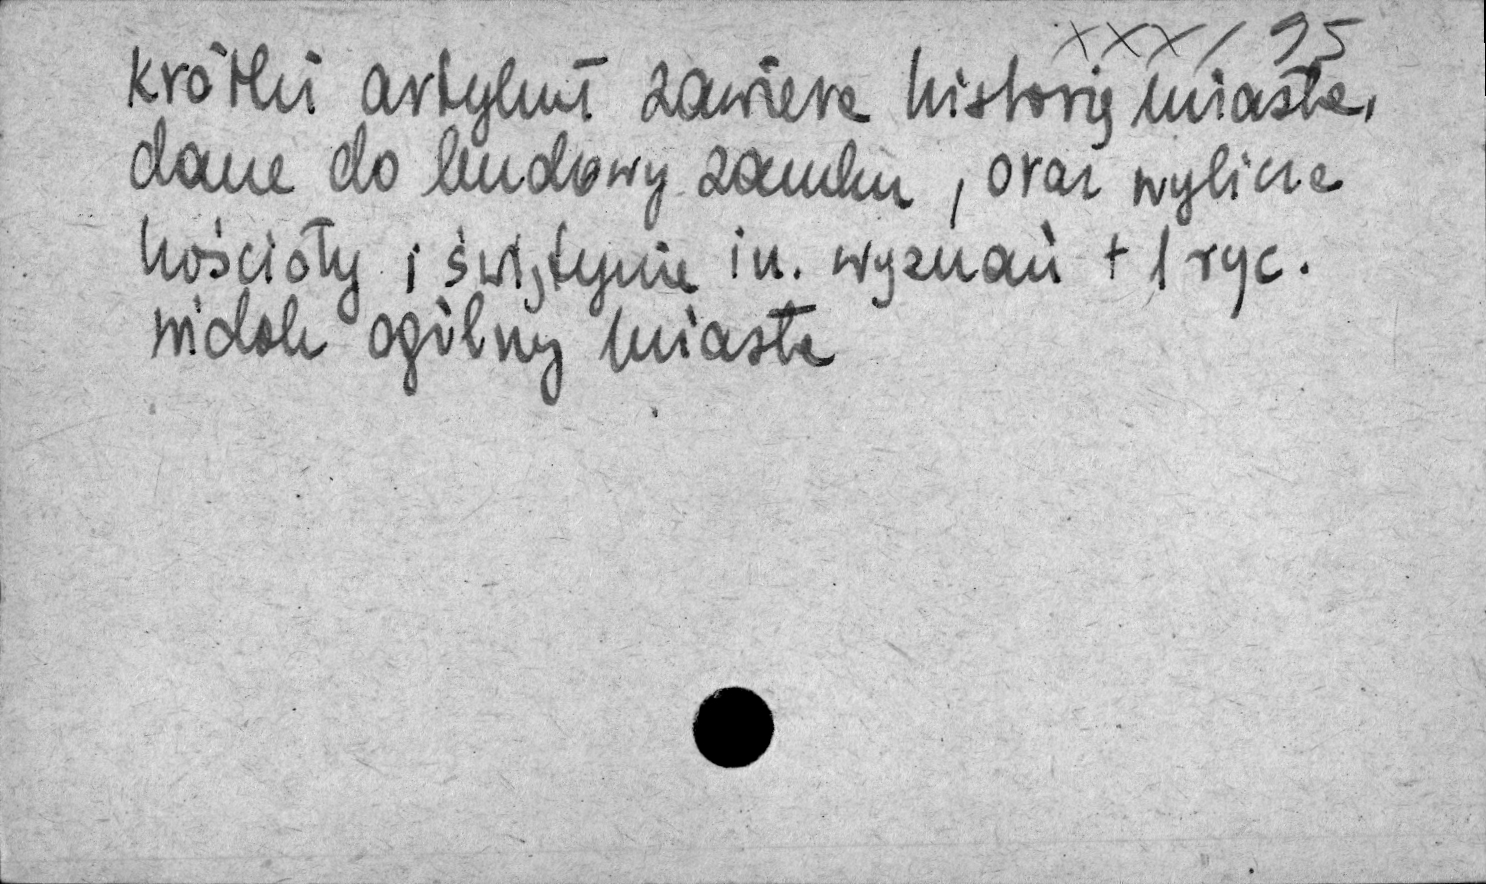 XXX/95
krótki artykuł zawiera historię miasta,
dane do budowy zamku, oraz wylicza
kościoły i świątynie in. wyznań + 1 ryc.
widok ogólny miasta